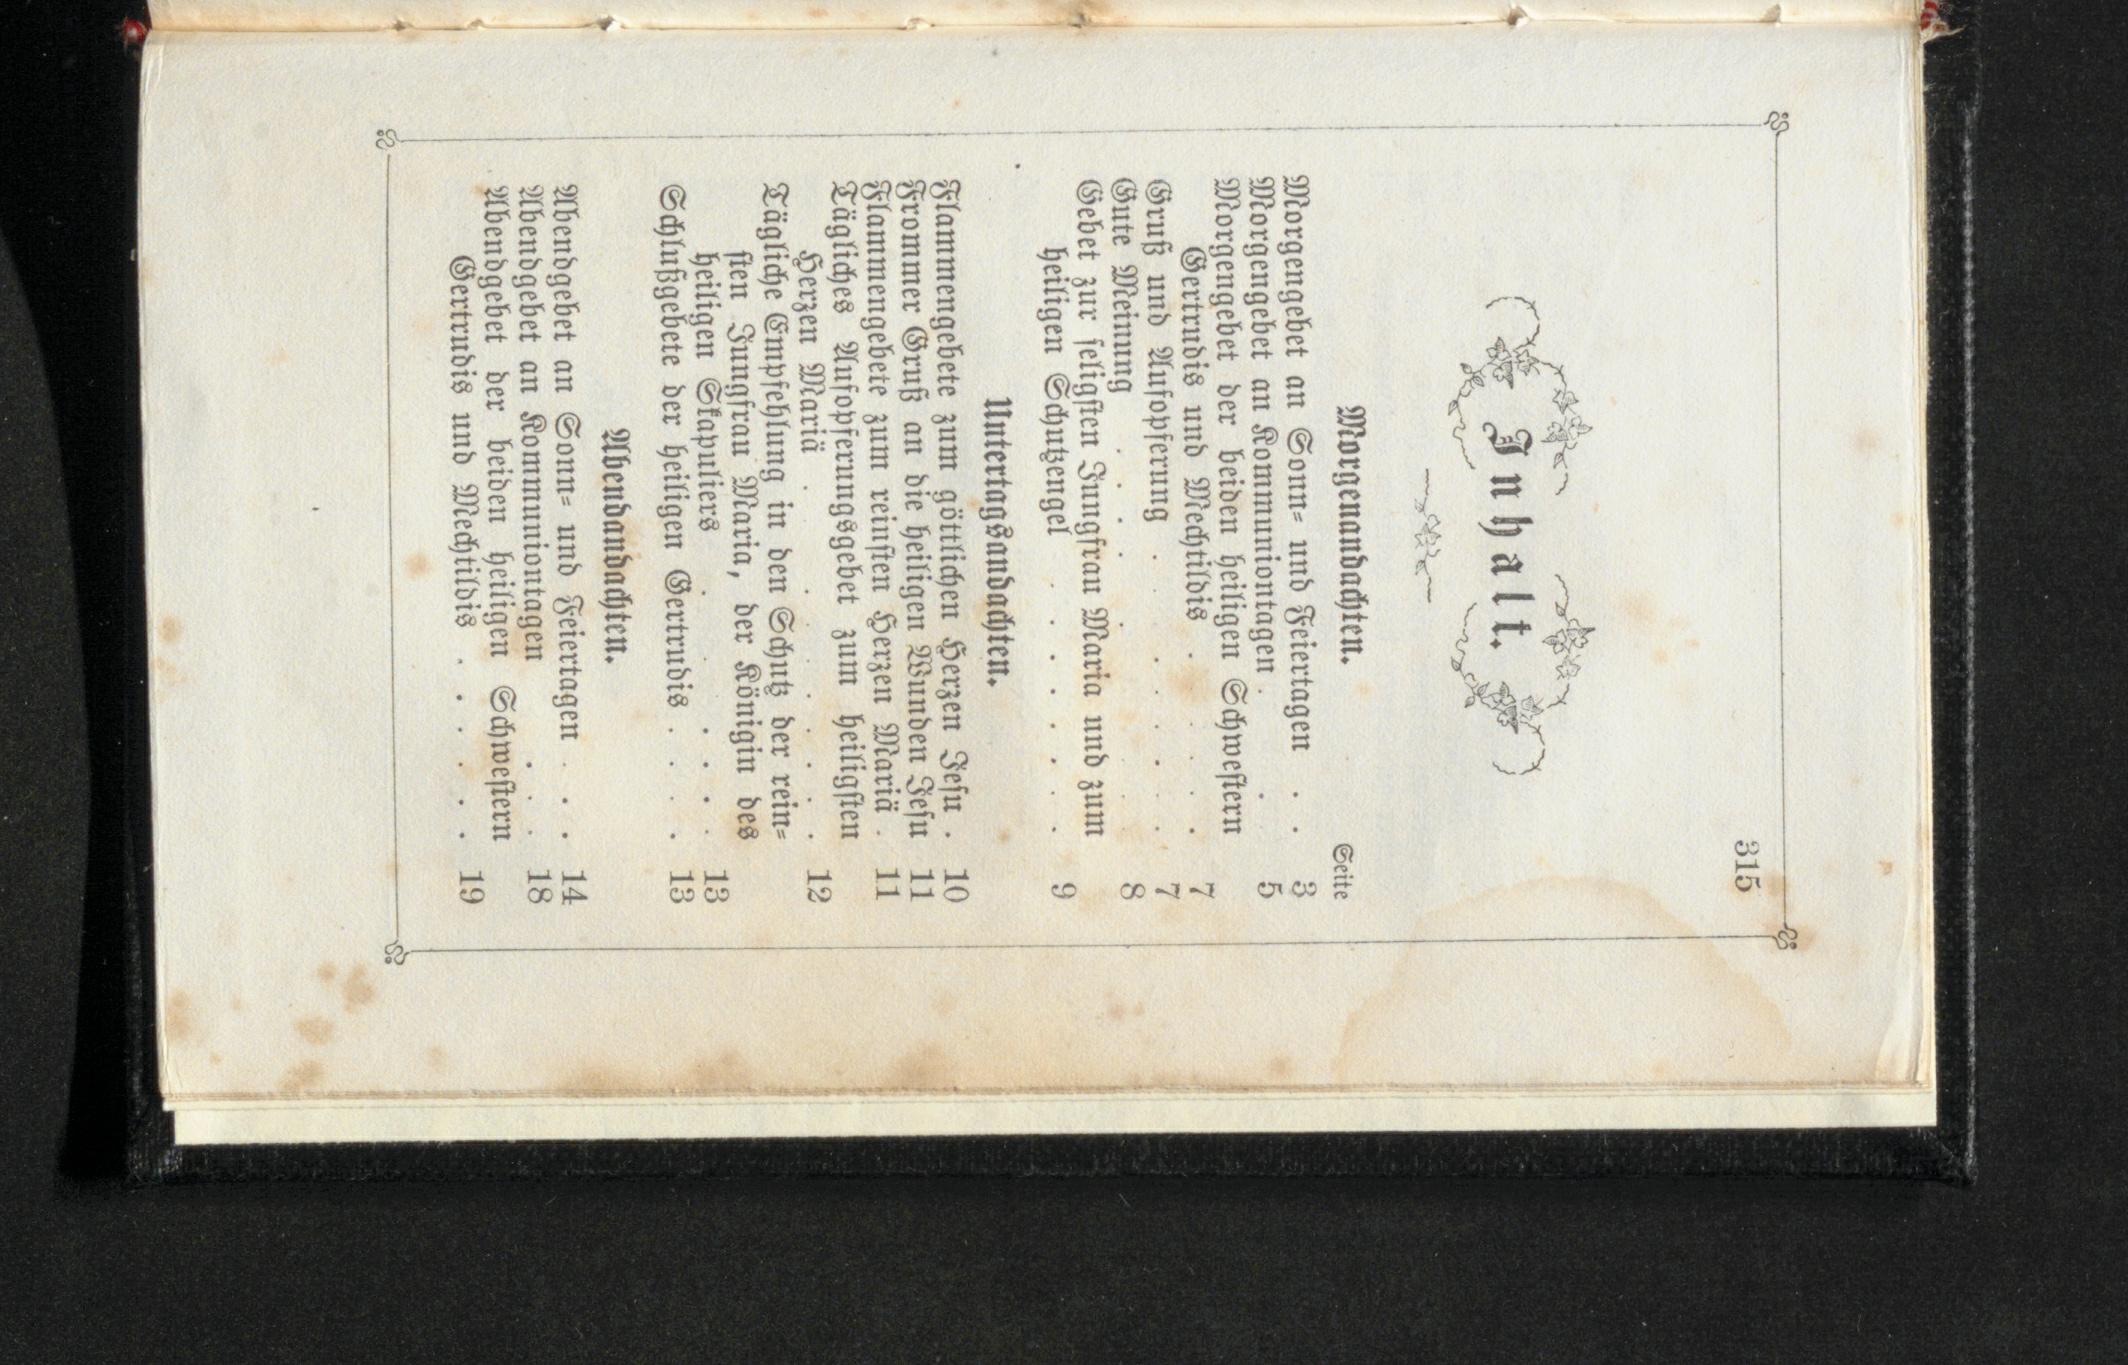 315
Inhalt.
Morgenandachten.
Seite
Morgengebet an Sonn= und Feiertagen . . 3
Morgengebet an Kommuniontagen . . 5
Morgengebet der beiden heiligen Schwestern
Gertrudis und Mechtildis . . . . . . 7
Gruß und Aufopferung . . . . . . 7
Gute Meinung . . . . . . . 8
Gebet zur seligsten Jungfrau Maria und zum
heiligen Schutzengel . . . . . . . . 9
Untertagsandachten.
Flammengebete zum göttlichen Herzen Jesu . 10
Frommer Gruß an die heiligen Wunden Jesu 11
Flammengebete zum reinsten Herzen Mariä . 11
Tägliches Aufopferungsgebet zum heiligsten
Herzen Mariä . . . . . . . . 12
Tägliche Empfehlung in den Schutz der rein=
sten Jungfrau Maria, der Königin des
heiligen Skapuliers . . . . . . 13
Schlußgebete der heiligen Gertrudis . . . . 13
Abendandachten.
Abendgebet an Sonn= und Feiertagen . . . 14
Abendgebet an Kommuniontagen . . . 18
Abendgebet der beiden heiligen Schwestern
Gertrudis und Mechtildis . . . . . . 19